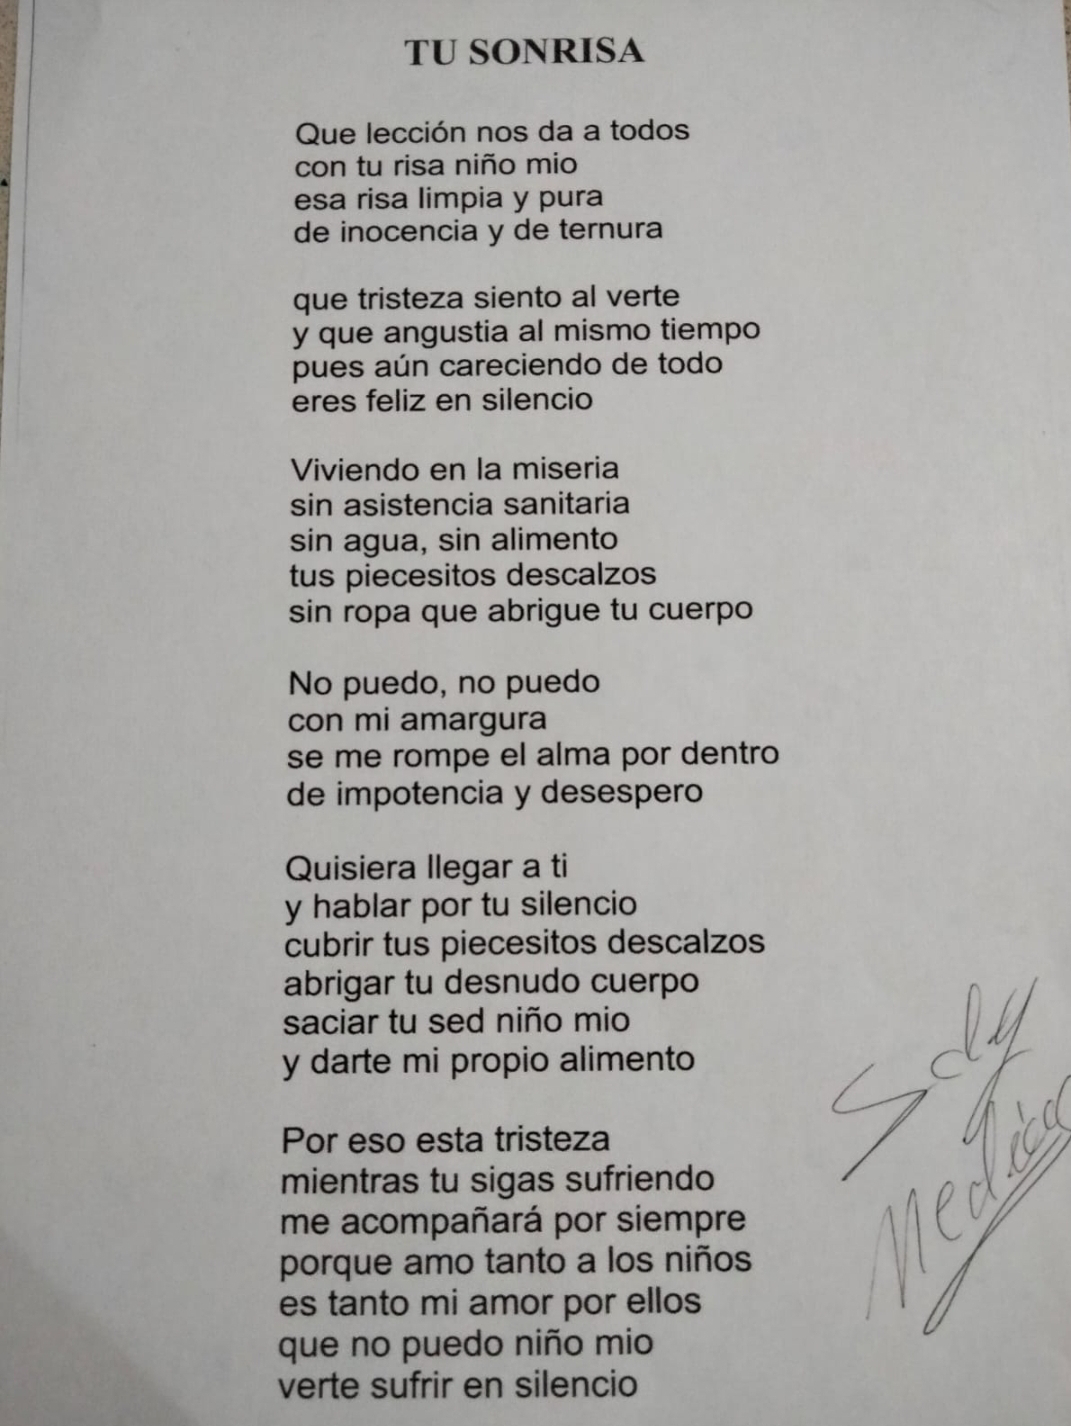 TU SONRISA
Que lección nos da a todos
con tu risa niño mio
esa risa limpia y pura
de inocencia y de ternura
que tristeza siento al verte
y que angustia al mismo tiempo
pues aún careciendo de todo
eres feliz en silencio
Viviendo en la miseria
sin asistencia sanitaria
sin agua, sin alimento
tus piecesitos descalzos
sin ropa que abrigue tu cuerpo
No puedo, no puedo
con mi amargura
se me rompe el alma por dentro
de impotencia y desespero
Quisiera llegar a ti
y hablar por tu silencio
cubrir tus piecesitos descalzos
abrigar tu desnudo cuerpo
saciar tu sed niño mio
y darte mi propio alimento
Por eso esta tristeza
mientras tu sigas sufriendo
me acompañará por siempre
porque amo tanto a los niños
es tanto mi amor por ellos
que no puedo niño mio
verte sufrir en silencio